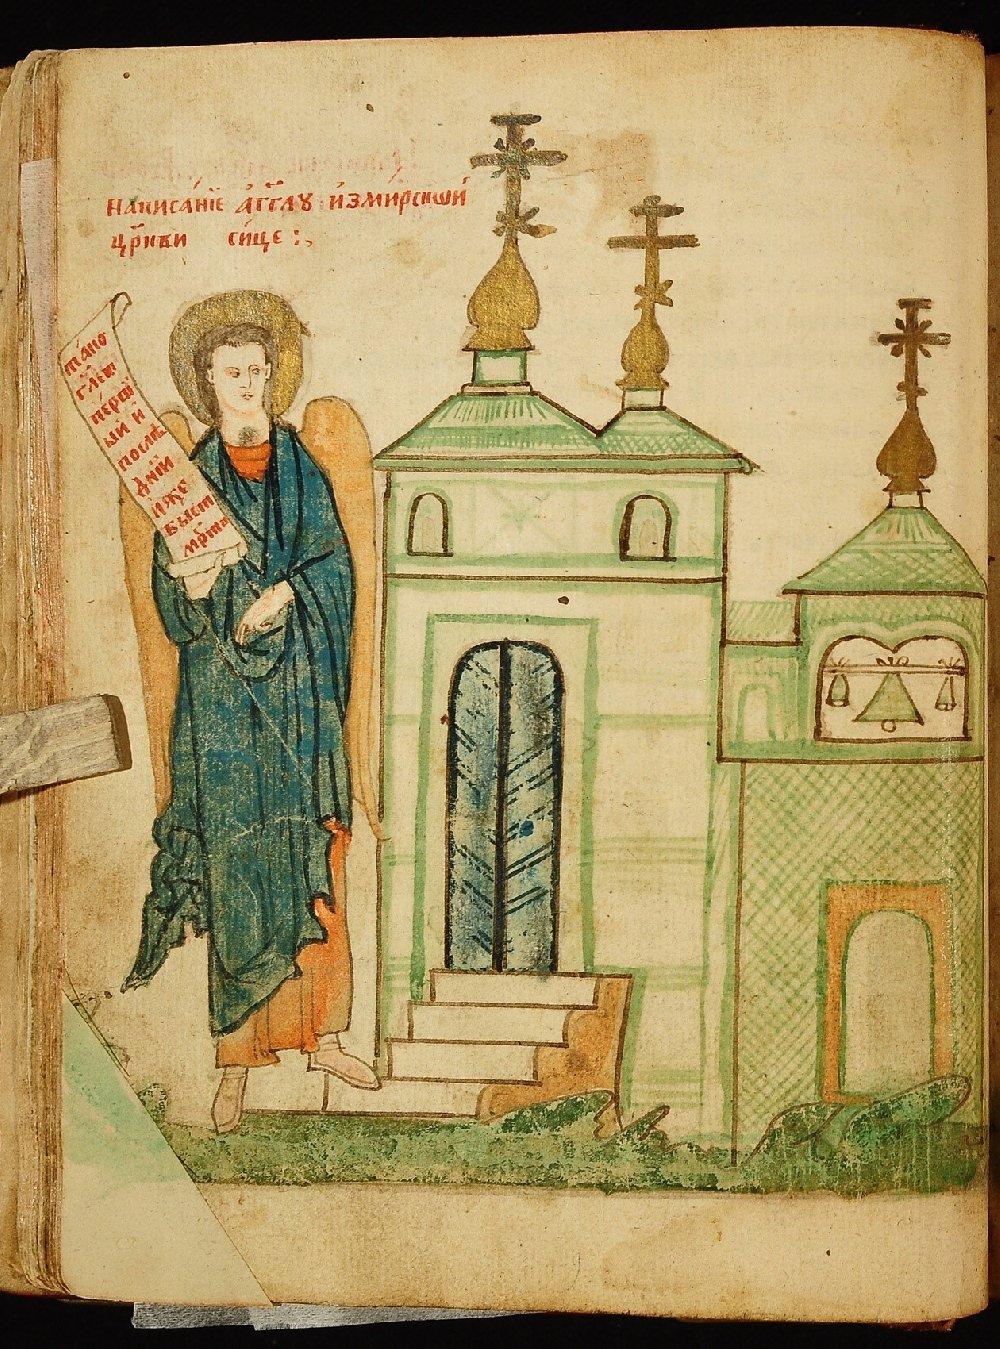 Написа́нїе а҆́гг҃лꙋ и҆змирски́и
цр҃кви си́це :,
та́ко
гл҃етъ
пе́рвы
ый и҆
послѣ́
днїй
и҆́же
бысть
мр҃твъ